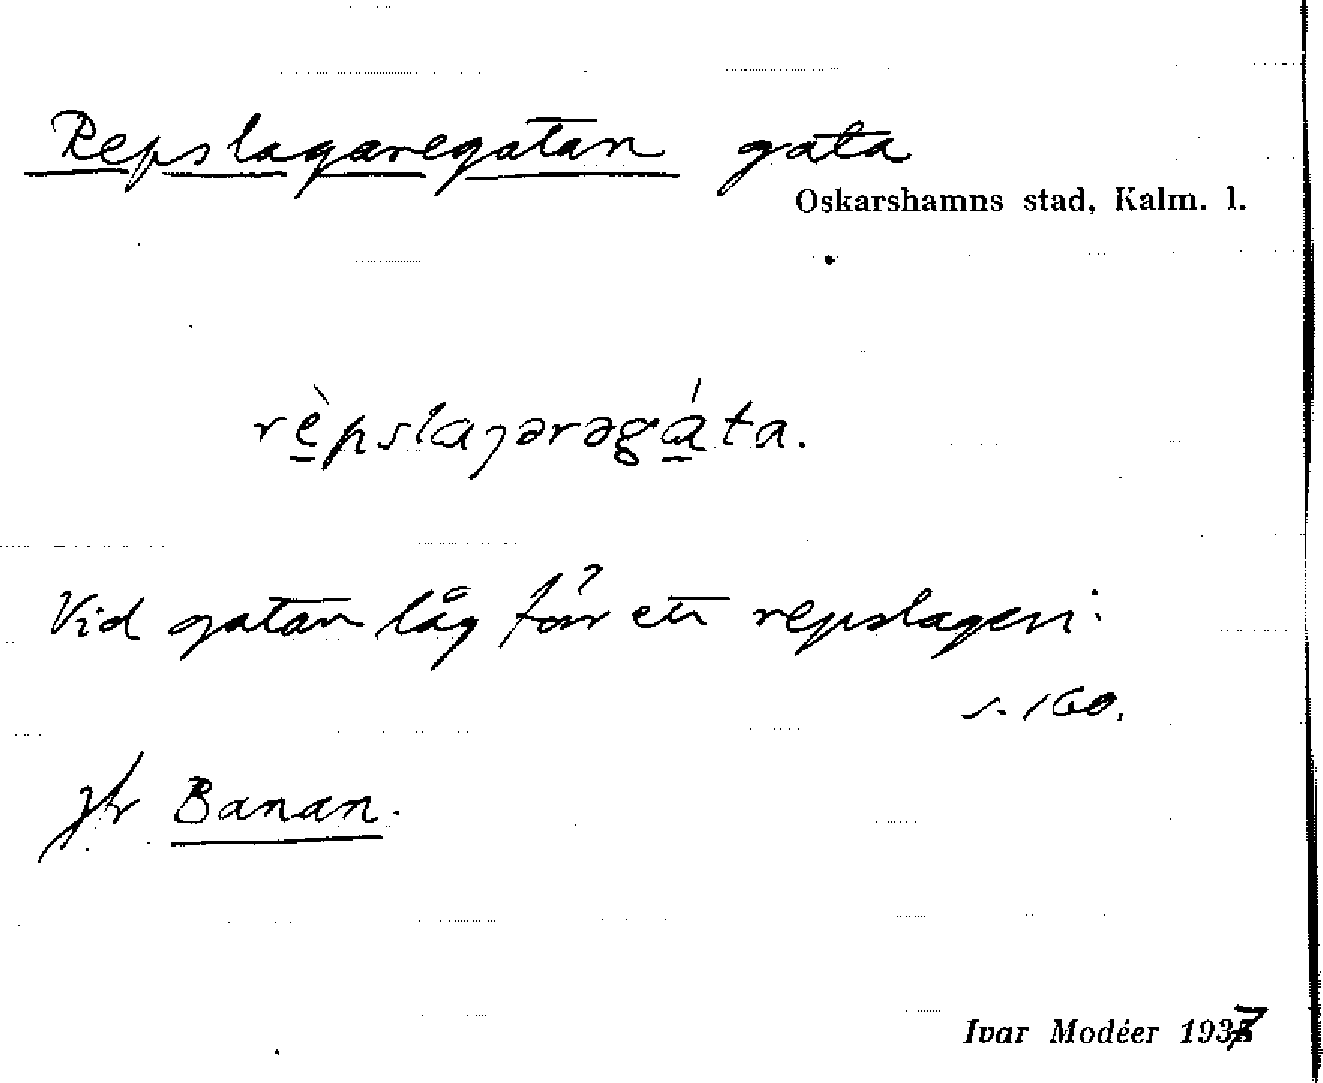 Repslagaregatan gata
Oskarshamns stad, Kalm. l.
rèpslaɡərəgáta.
Vid gatan låg förr ett repslageri:
s. 160.
Jfr Banan.
Ivar Modéer 1937